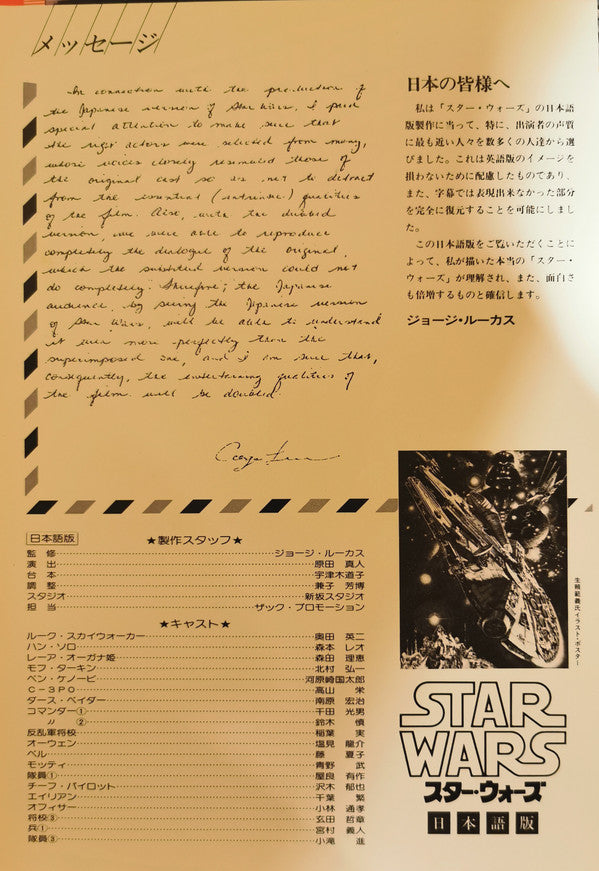 メッセージ
In connection with the production of
the Japanese version of Star Wars, I paid
special attention to make sure that
the right actors were selected from many,
whose voices closely resembled those of
the original cast so as not to detract
from the essential (intrinsic) qualities
of the film. Also, with the dubbed
version, we were able to reproduce
completely the dialogue of the original,
which the subtitled version could not
do completely. Therefore, the Japanese
audience, by seeing the Japanese version
of Star Wars, will be able to understand
it even more perfectly than the
superimposed one, and I am sure that,
consequently, the entertaining qualities of
the film will be doubled.
日本の皆様へ
私は「スター・ウォーズ」の日本語
版製作に当って、特に、出演者の声質
に最も近い人々を数多くの人達から選
びました。これは英語版のイメージを
損わないために配慮したものであり、
また、字幕では表現出来なかった部分
を完全に復元することを可能にしまし
た。
この日本語版をご覧いただくことに
よって、私が描いた本当の「スター・
ウォーズ」が理解され、また、面白さ
も倍増するものと確信します。
ジョージ・ルーカス
日本語版 ★製作スタッフ★
監修 ジョージ・ルーカス
演出 原田 真人
台本 宇津木道子
調整 兼子 芳博
スタジオ 新坂スタジオ
担当 ザック・プロモーション
★キャスト★
ルーク・スカイウォーカー 奥田 英二
ハン・ソロ 森本 レオ
レーア・オーガナ姫 森田 理恵
モフ・ターキン 北村 弘一
ベン・ケノービ 河原崎国太郎
C-3PO 高山 栄
ダース・ベイダー 南原 宏治
コマンダー① 千田 光男
〃 ② 鈴木 慎
反乱軍将校 稲葉 実
オーウェン 塩見 龍介
ベル 藤 夏子
モッティ 青野 武
隊員① 屋良 有作
チーフ・パイロット 沢木 郁也
エイリアン 千葉 繁
オフィサー 小林 通孝
将校③ 玄田 哲章
兵① 宮村 義人
隊員③ 小滝 進
生頼範義氏イラスト・ポスター
STAR
WARS
スター・ウォーズ
日本語版